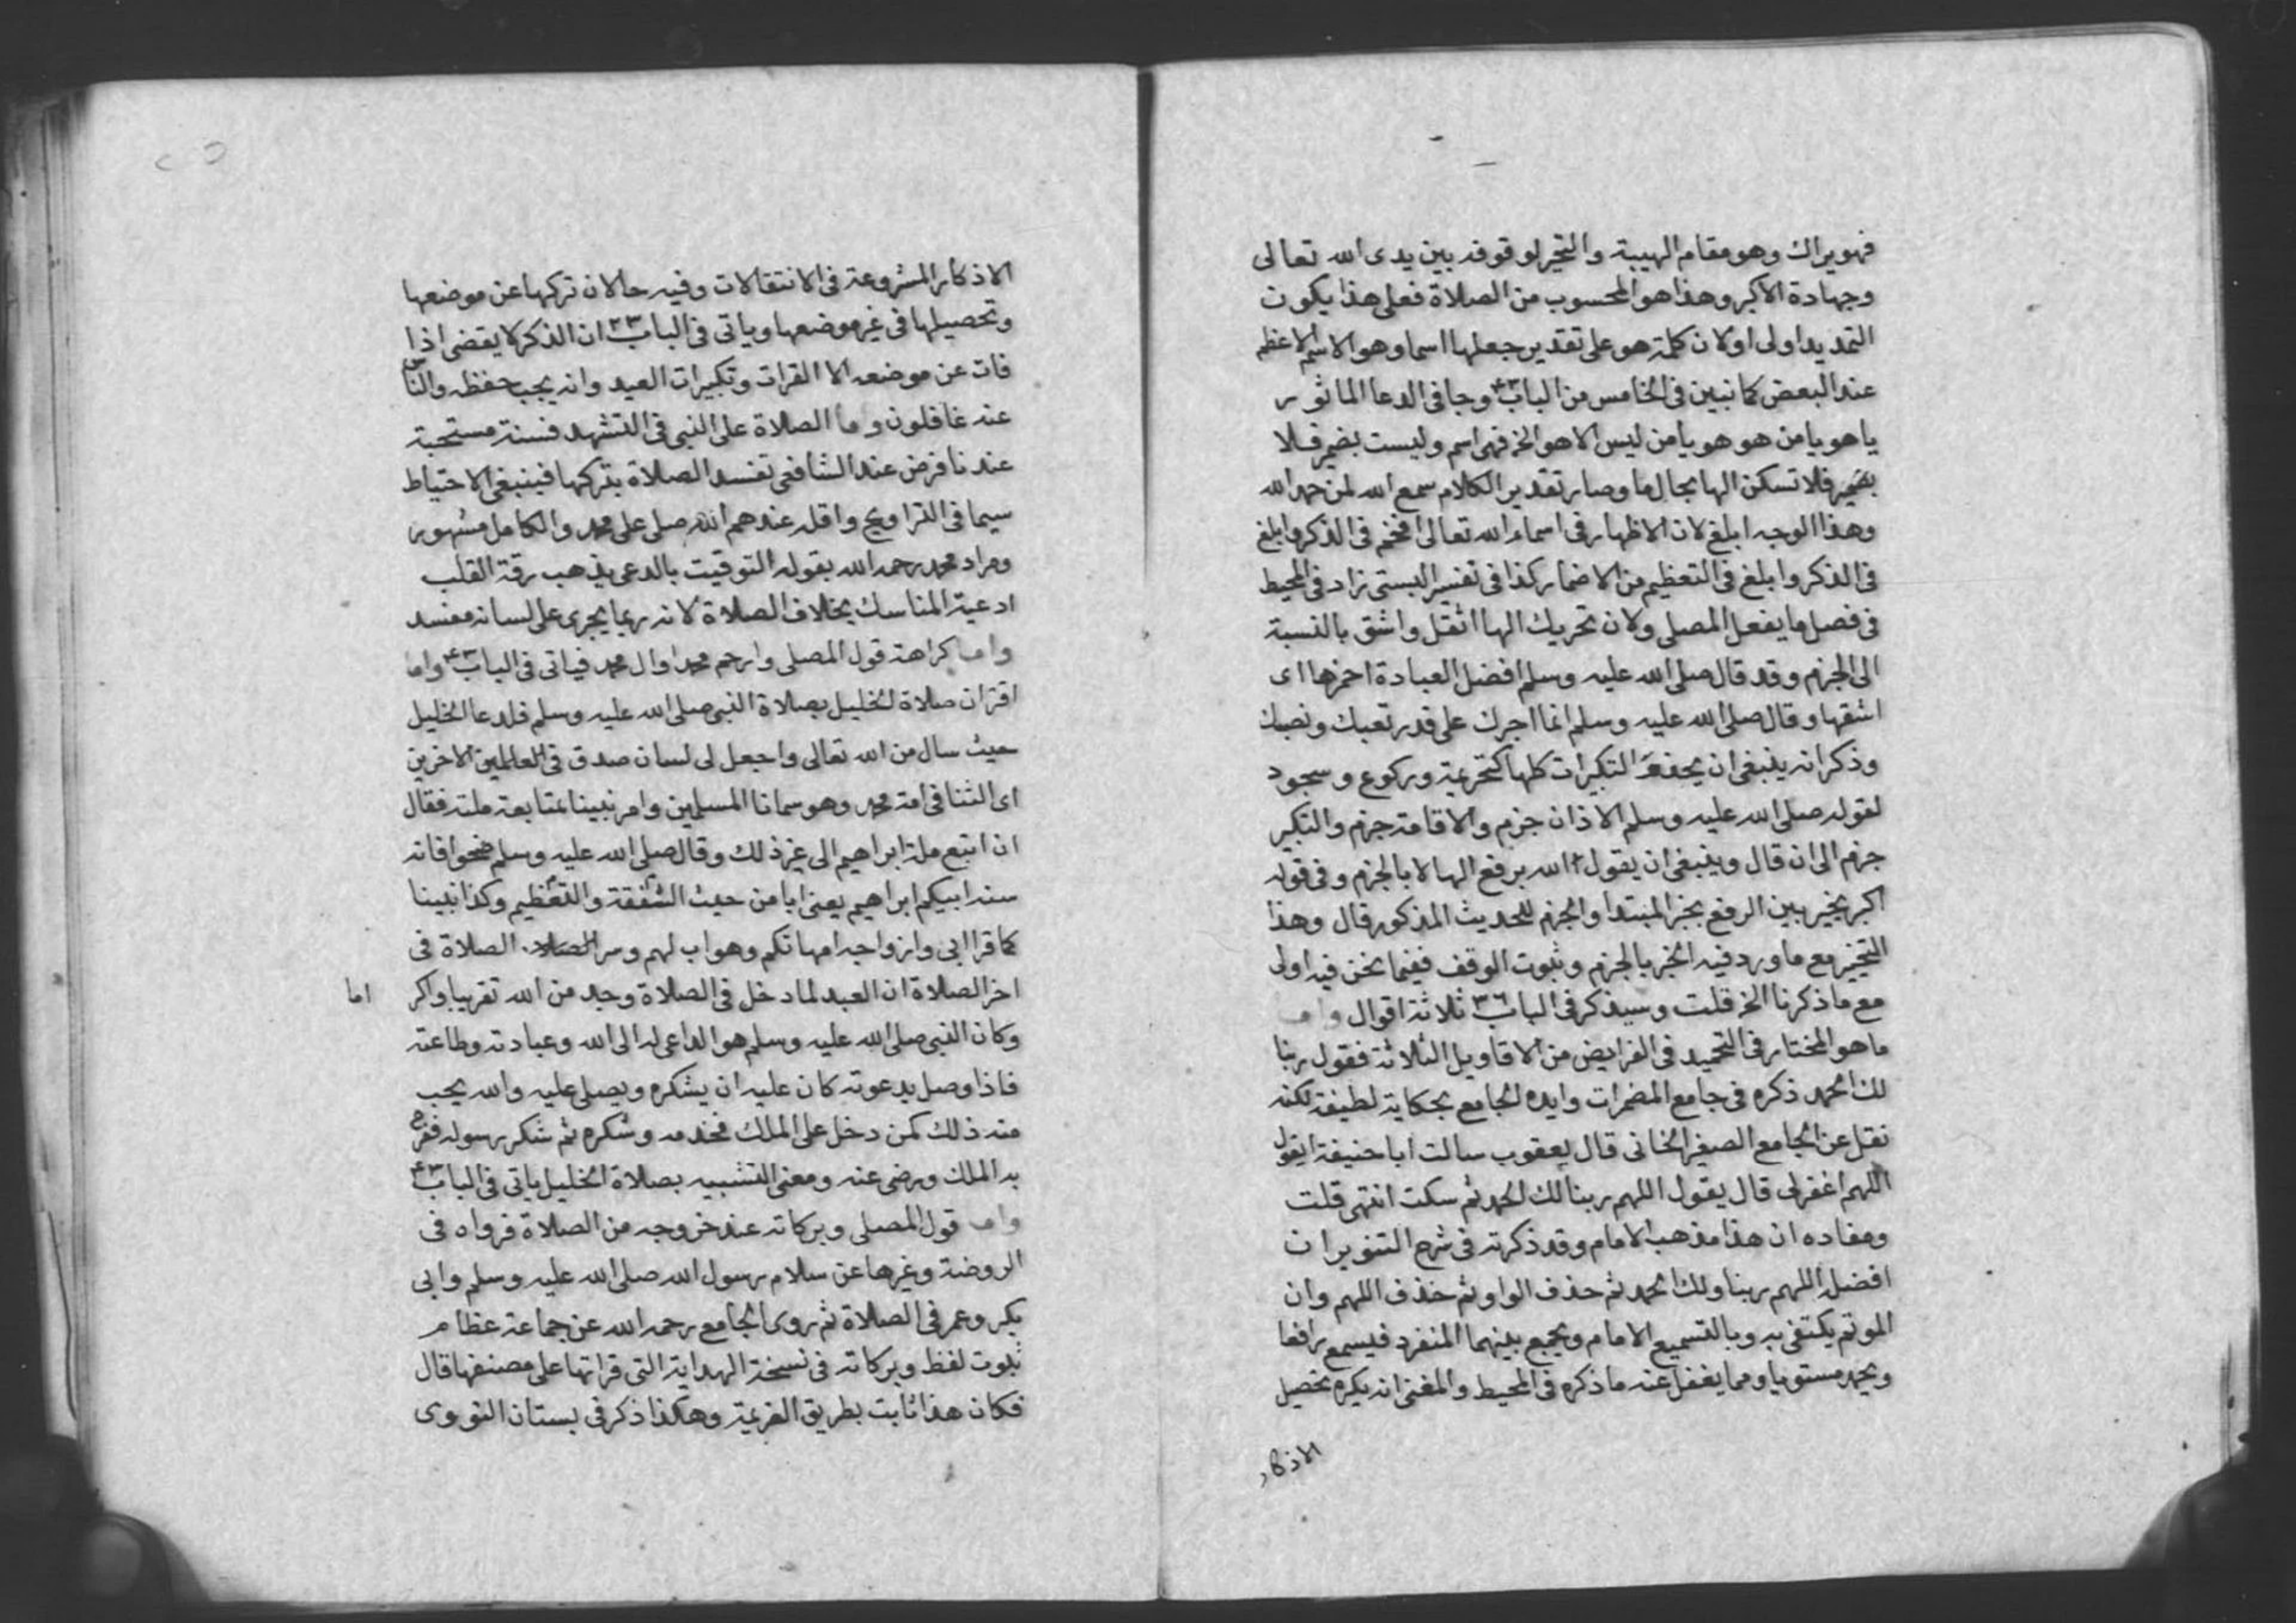 فهو يراك وهو مقام الهيبة والتحير لوقوفه بين يدى الله تعالى
وجهادة الاكبر وهذا هو المحسوب من الصلاة فعلى هذا يكون
التمديد اولى اولان كلمة هو على تقدير جعلها اسما وهو الاسم الاعظم
عند البعض كما نبين فى الخامس من الباب ٤٣ وجا فى الدعا الماثور
يا هو يا من هو هو يا من ليس الا هو الخ فهى اسم وليست بضمير فلا
بضمير فلا تسكن الها بحال ما وصار تقدير الكلام سمع الله لمن حمد الله
وهذا الوجه ابلغ لان الاظهار فى اسماء الله تعالى افخم فى الذكر وابلغ
فى الذكر وابلغ فى التعظيم من الاضمار كذا فى تفسير البستى زاد فى المحيط
فى فصل ما يفعل المصلى ولان تحريك الها اثقل واشق بالنسبة
الى الجزم وقد قال صلى الله عليه وسلم افضل العبادة احمزها اى
اشقها وقال صلى الله عليه وسلم انما اجرك على قدر تعبك ونصبك
وذكر انه ينبغى ان التكبيرات كلها كتحريمة وركوع وسجود
لقوله صلى الله عليه وسلم الاذان جزم والاقامة جزم والتكبير
جزم الى ان قال وينبغى ان يقول الله برفع الها لا بالجزم وفى قوله
اكبر يخير بين الرفع بخبر المبتدا والجزم للحديث المذكور قال وهذا
التخيير مع ما ورد فيه الخبر بالجزم وثبوت الوقف ففيما نحن فيه اولى
مع ما ذكرنا الخ قلت وسيذكر فى الباب ٣٦ ثلاثة اقوال واما
ما هو المختار فى التحميد فى الفرايض من الاقاويل الثلاثة فقول ربنا
لك الحمد ذكره فى جامع المضمرات وايده الجامع بحكاية لطيفة لكنه
نقل عن الجامع الصغير الخانى قال يعقوب سالت ابا حنيفة ايقول
اللهم اغفر لى قال يقول اللهم ربنا لك الحمد ثم سكت انتهى قلت
ومفاده ان هذا مذهب الامام وقد ذكرته فى شرح التنوير ان
افضل اللهم ربنا ولك الحمد ثم حذف الواو ثم حذف اللهم وان
الموتم يكتفى به وبالتسميع الامام ويجمع بينهما المنفرد فيسمع رافعا
ويحمد مستويا ومما يغفل عنه ما ذكره فى المحيط والمغنى انه يكره تحصيل
الاذكار
الاذكار المشروعة فى الانتقالات وفيه حالان تركها عن موضعها
وتحصيلها فى غير موضعها وياتى فى الباب ٣٣ ان الذكر لا يقضى اذا
فات عن موضعه الا القرات وتكبيرات العيد وانه يجب حفظه والناس
عنه غافلون واما الصلاة على النبى فى التشهد فسنة مستحبة
عندنا فرض عند الشافعى تفسد الصلاة بتركها فينبغى الاحتياط
سيما فى التراويح واقله عندهم اللهم صلى على محمد والكامل مشهور
ومراد محمد رحمه الله بقوله التوقيت بالدعى يذهب رقة القلب
ادعية المناسك بخلاف الصلاة لانه ربما يجرى على لسانه مفسد
واما كراهة قول المصلى وارحم محمدا وال محمد فياتى فى الباب ٤٣ واما
اقتران صلاة الخليل بصلاة النبى صلى الله عليه وسلم فلدعا الخليل
حيث سال من الله تعالى واجعل لى لسان صدق فى العالمين الاخرين
اى الثنا فى امة محمد وهو سمانا المسلمين وامر نبينا بمتابعة ملته فقال
ان اتبع ملة ابراهيم الى غير ذلك وقال صلى الله عليه وسلم ضحوا فانه
سنة ابيكم ابراهيم يعنى ابا من حيث الشفقة والتعظيم وكذا نبينا
كما قرا ابى وازواجه امهاتكم وهو اب لهم وسر الصلاة الصلاة فى
اخر الصلاة ان العبد لما دخل فى الصلاة وجد من الله تقريبا واكر
اما
وكان النبى صلى الله عليه وسلم هو الداعى له الى الله وعبادته وطاعته
فاذا وصل بدعوته كان عليه ان يشكره ويصلى عليه والله يحب
منه ذلك كمن دخل على الملك فخدمه وشكره ثم شكر رسوله ففرح
به الملك ورضى عنه ومعنى التشبيه بصلاة الخليل ياتى فى الباب ٤٣
واما قول المصلى وبركاته عند خروجه من الصلاة فرواه فى
الروضة وغيرها عن سلام رسول الله صلى الله عليه وسلم وابى
بكر وعمر فى الصلاة ثم روى الجامع رحمه الله عن جماعة عظام
ثبوت لفظ وبركاته فى نسخة الهداية التى قراتها على مصنفها قال
فكان هذا ثابت بطريق العزيمة وهكذا ذكر فى بستان النووى